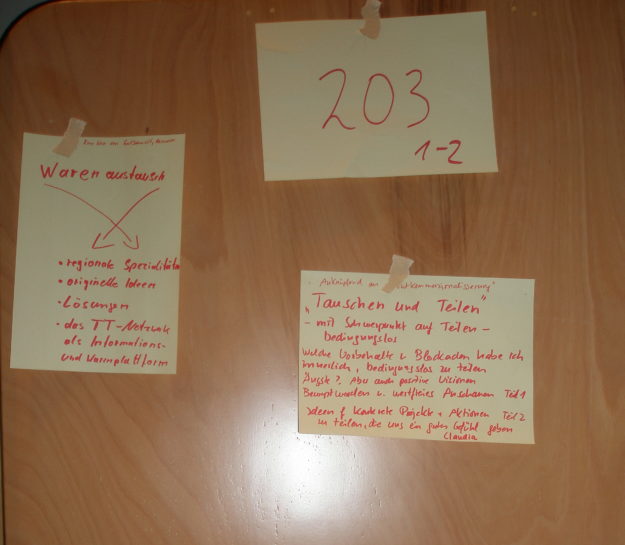 203
1-2
Warenaustausch
• regionale Spezialitäten
• originelle Ideen
• Lösungen
• das TT-Netzwerk
als Informations-
und Warenplattform
Anknüpfend an
"Tauschen und Teilen"
- mit Schwerpunkt auf Teilen -
bedingungslos
Welche Vorbehalte u. Blockaden habe ich
innerlich, bedingungslos zu teilen
Ängste? Aber auch positive Visionen
Bewusstwerden u. wertfreies Anschauen Teil 1
Ideen f. konkrete Projekte + Aktionen Teil 2
zu teilen, die uns ein gutes Gefühl geben
Claudia